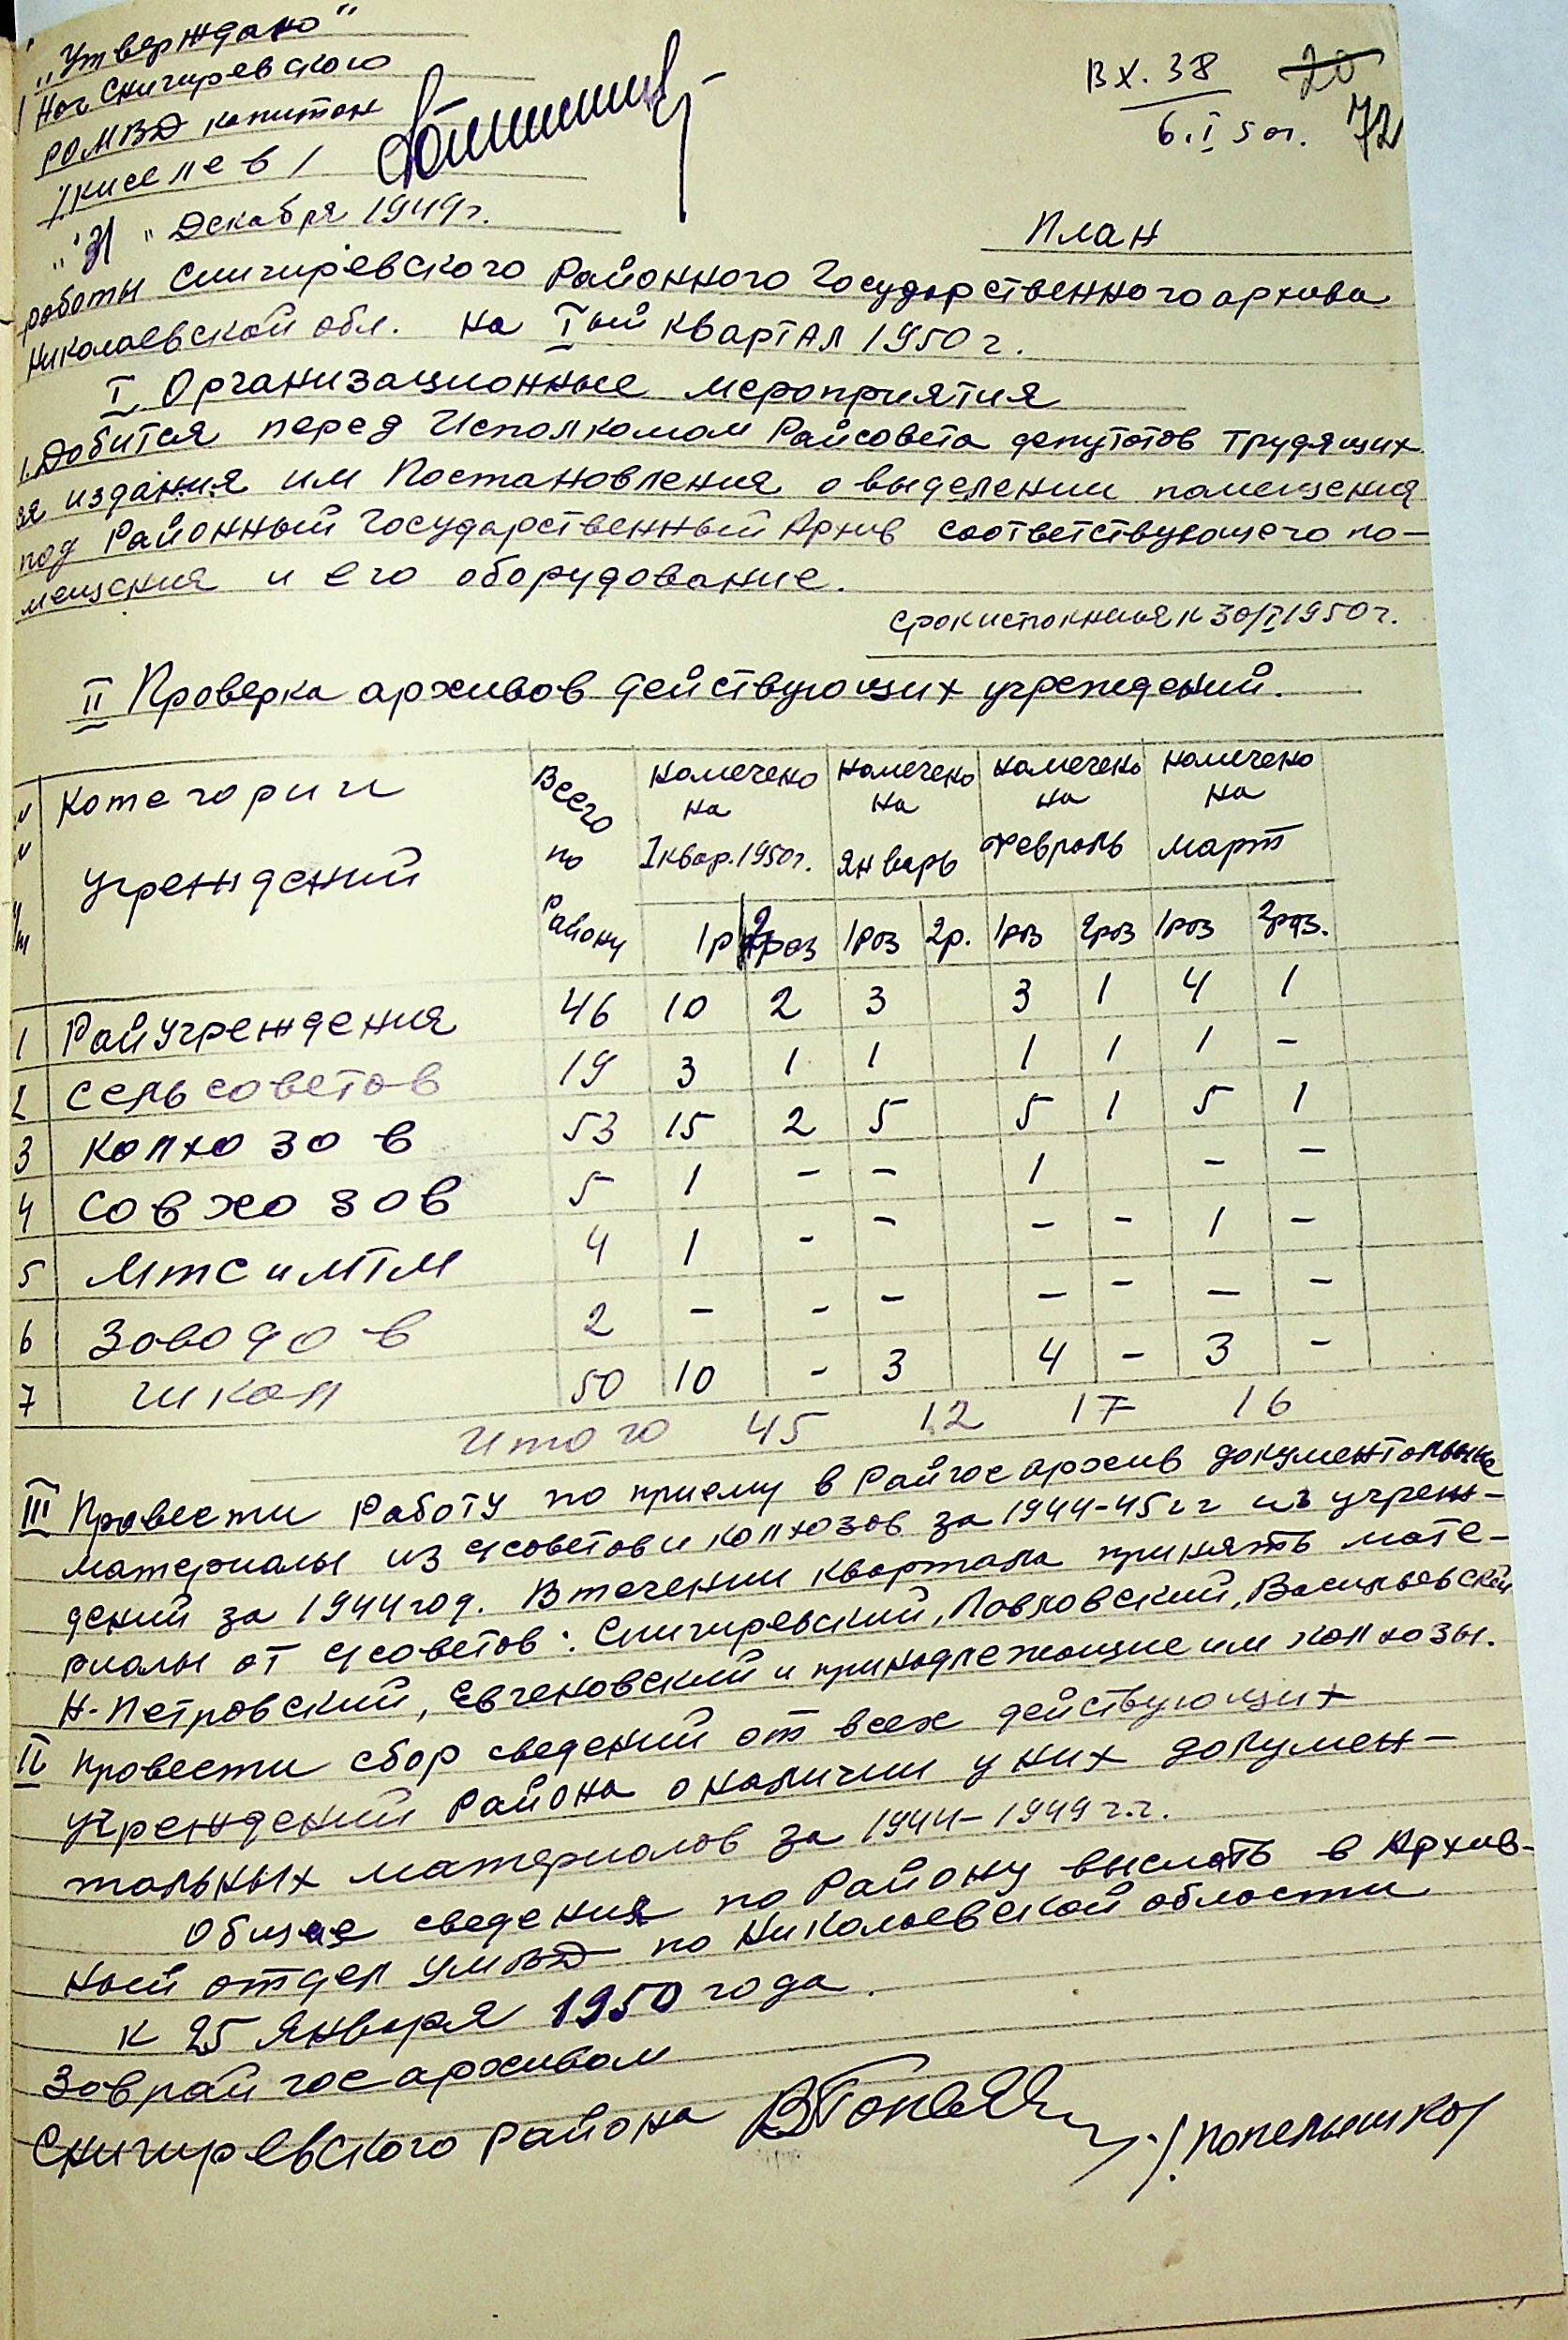 „Утверждаю"
Нач Снигиревского
РОМВД капитан
/Киселев/
„31" Декабря 1949г.
Вх. 38 20
6.I 50г. 72
План
работы Снигиревского Районного Государственного архива
Николаевской обл. на Iый квартал 1950г.
I Организационные мероприятия
1. Добится перед Исполкомом Райсовета депутатов трудящих
ся издания им Постановления о выделении помещения
под Районный Государственный Архив соответствующего по-
мещения и его оборудование.
к 30/I 1950г.
II Проверка архивов действующих учреждений.
Категории учреждений Всего по Району намечено на I квар. 1950г. намечено на январь намечено на февраль намечено на март
1р 2раз 1раз 2р. 1раз 2раз 1раз 2раз.
1 Райучреждения 46 10 2 3 3 1 4 1
2 Сельсоветов 19 3 1 1 1 1 1 -
3 Колхозов 53 15 2 5 5 1 5 1
4 Совхозов 5 1 - - 1 - -
5 МТС и МТМ 4 1 - - - - 1 -
6 Заводов 2 - - - - - - -
7 Школ 50 10 - 3 4 - 3 -
Итого 45 12 17 16
III Провести работу по приему в Райгосархив документальные
материалы из с/советов и колхозов за 1944-45гг из учреж-
дений за 1944год. В течении квартала принять мате-
риалы от с/советов: Снигиревский, Павловский, Васильевский
Н-Петровский, Евгеновский и принадлежающие им колхозы.
IV Провести сбор сведений от всех действующих
учреждений Района о наличии у них докумен-
тальных материалов за 1944-1949г.г.
Общие сведения по Району выслать в Архив-
ный отдел УМВД по Николаевской области
к 25 Января 1950 года.
Зав райгосархивом
Снигиревского района /Попельшко/